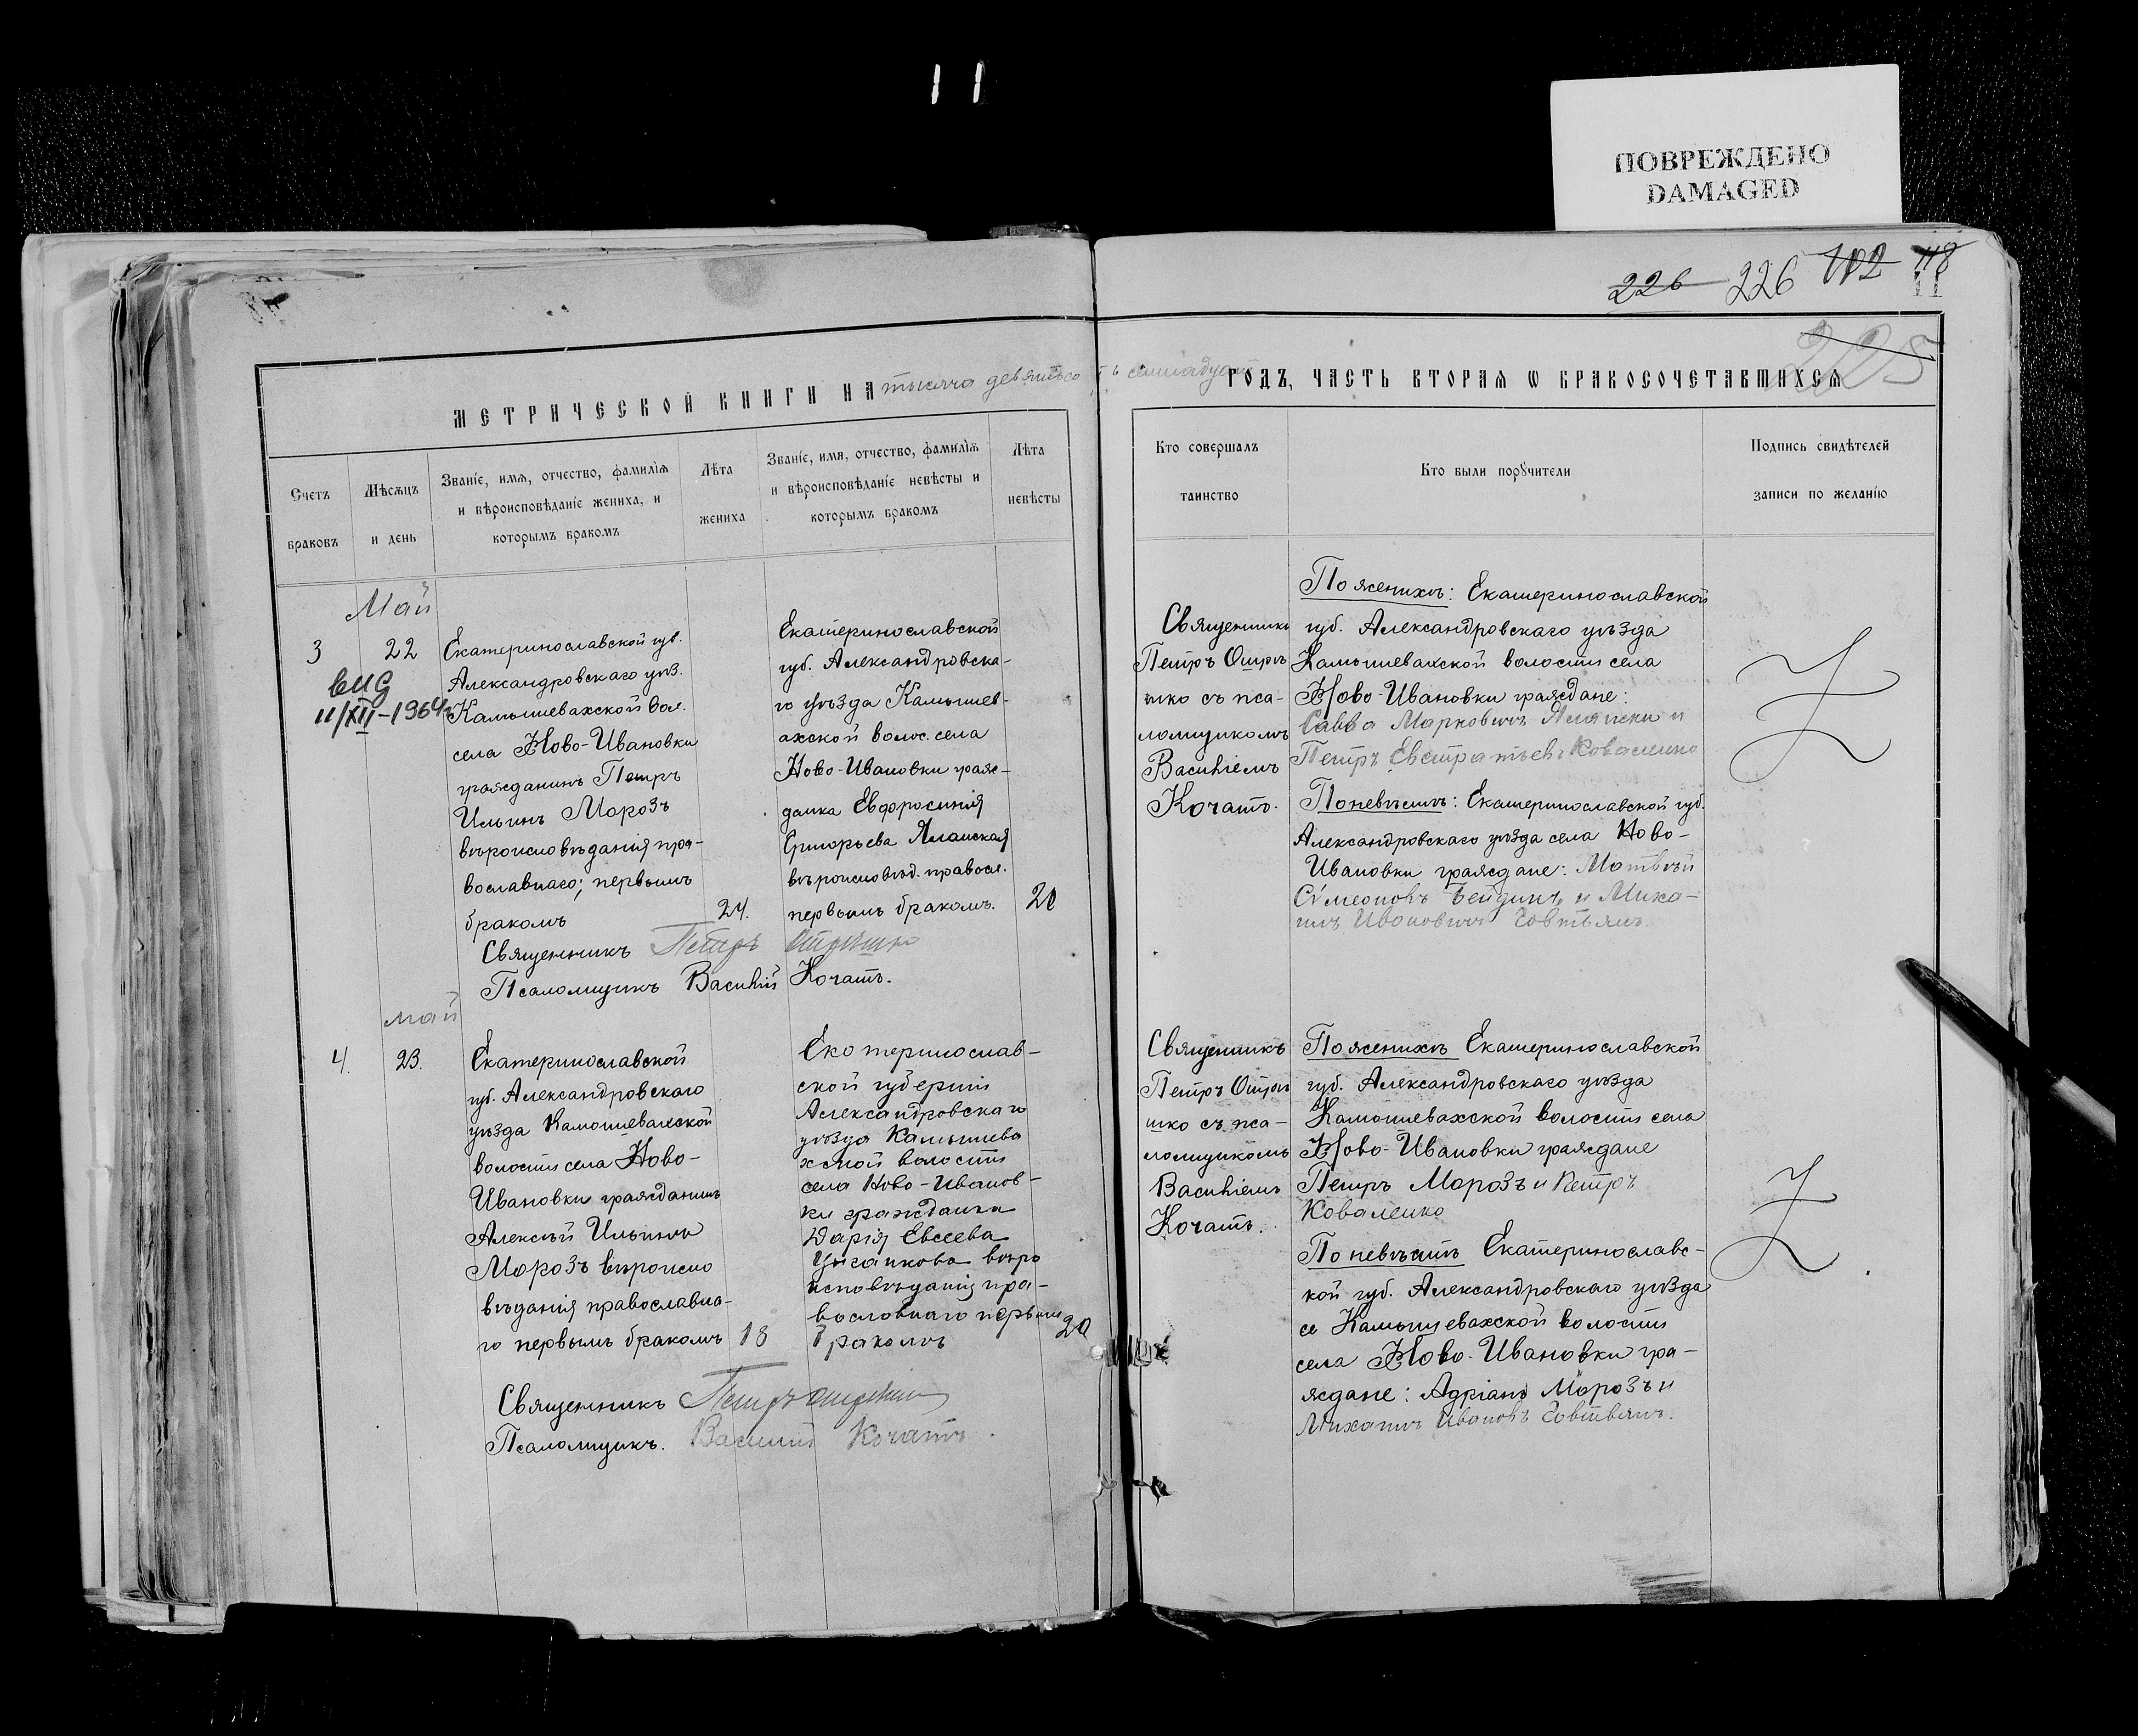 ПОВРЕЖДЕНО
DAMAGED
226 226 102 118
11
225
МЕТРИЧЕСКОЙ КНИГИ НА тысяча девятьсо
Счетъ
браковъ
Мѣсяцъ
и день
Званіе, имя, отчество, фамилія
и вѣроисповѣданіе жениха, и
которымъ бракомъ
Лѣта
жениха
Званіе, имя, отчество, фамилія
и вѣроисповѣданіе невѣсты и
которымъ бракомъ
Лѣта
невѣсты
Май
3
22
11/XII-1964г
Екатеринославской губ.
Александровскаго уѣз.
Камышевахской вол.
села Ново-Ивановки
гражданинъ Петръ
Ильинъ Морозъ
вѣроисповѣданія пра-
вославнаго; первымъ
бракомъ
24.
Екатеринославской
губ. Александровска-
го уѣзда Камышев-
ахской волос. села
Ново-Ивановки граж-
данка Евфросинія
Григорьева
вѣроисповѣд. правосл.
первымъ бракомъ.
20
Священникъ Петръ
Псаломщикъ Василій Кочатъ.
май
4.
23.
Екатеринославской
губ. Александровскаго
уѣзда Камышевахской
волости села Ново-
Ивановки гражданинъ
Алексѣй Ильинъ
Морозъ вѣроиспо
вѣданія православна-
го первымъ бракомъ
18
Екатеринослав-
ской губерніи
Александровскаго
уѣзда Камышева
хской волости
села Ново-Иванов-
ки гражданка
Дарія Евсеева
вѣро
исповѣданія пра-
вославнаго первым
бракомъ
20
Священникъ Петръ
Псаломщикъ. Василій Кочатъ.
ГОДЪ, ЧАСТЬ ВТОРАЯ Ѡ БРАКОСОЧЕТАВШИХСЯ
Кто совершалъ
таинство
Кто были порꙋчители
Подпись свидѣтелей
записи по желанію
Священникъ
Петръ Отрѣ
шко съ пса-
ломщикомъ
Василіемъ
Кочатъ.
По женихѣ: Екатеринославской
губ. Александровскаго уѣзда
Камышевахской волости села
Ново-Ивановки граждане:
Савва Марковичъ и
Петръ Евстратьевъ Коваленко
По невѣстѣ: Екатеринославской губ.
Александровскаго уѣзда села Ново-
Ивановки граждане: Матвѣй
Сѵмеоновъ и Миха-
илъ Ивановичъ
Священникъ
Петръ Отрѣ
шко съ пса-
ломщикомъ
Василіемъ
Кочатъ.
По женихѣ Екатеринославской
губ. Александровскаго уѣзда
Камышевахской волости села
Ново-Ивановки граждане
Петръ Морозъ и Петръ
Коваленко
По невѣстѣ Екатеринославс-
кой губ. Александровскаго уѣзда
се Камышевахской волости
села Ново-Ивановки гра-
ждане: Адріанъ Морозъ и
Михаилъ Ивановъ